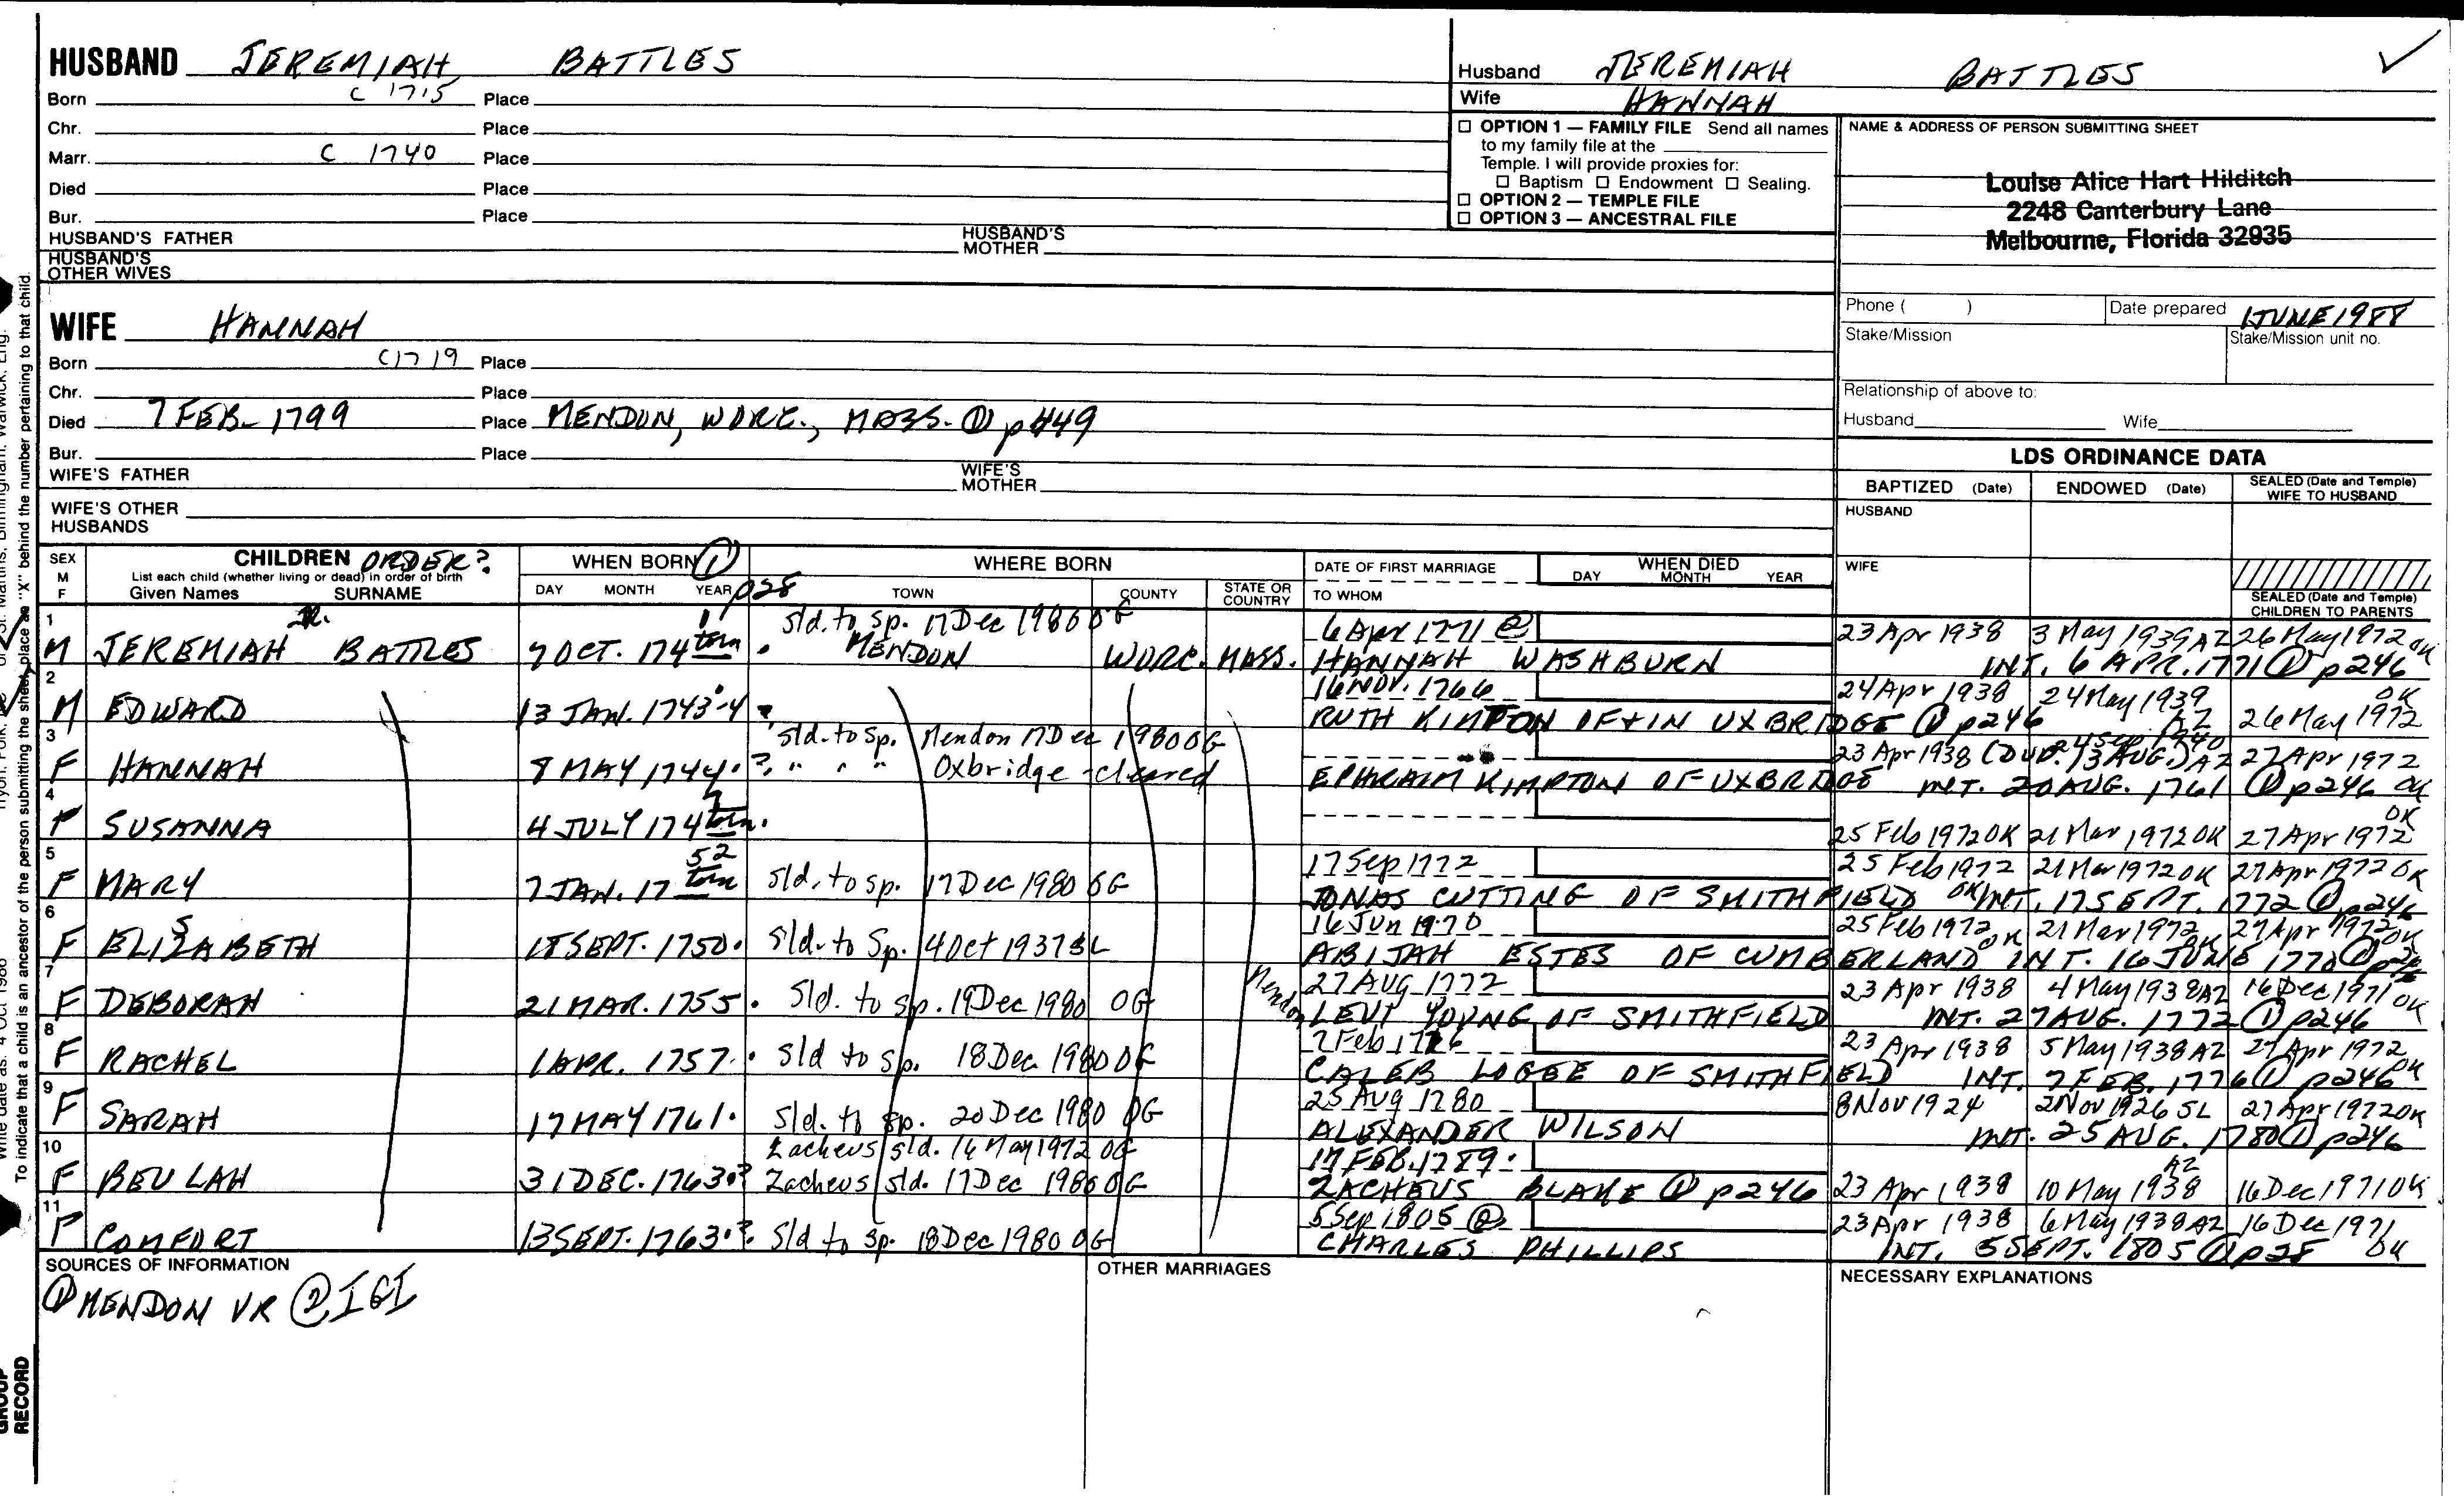 HUSBAND JEREMIAH BATTLES
Born C 1715 Place
Chr. Place
Marr. C 1740 Place
Died Place
Bur. Place
HUSBAND'S FATHER HUSBAND'S MOTHER
HUSBAND'S OTHER WIVES
Husband JEREMIAH BATTLES
Wife HANNAH
☐ OPTION 1 — FAMILY FILE Send all names
to my family file at the
Temple. I will provide proxies for:
☐ Baptism ☐ Endowment ☐ Sealing.
☐ OPTION 2 — TEMPLE FILE
☐ OPTION 3 — ANCESTRAL FILE
NAME & ADDRESS OF PERSON SUBMITTING SHEET
Louise Alice Hart Hilditch
2248 Canterbury Lane
Melbourne, Florida 32935
Phone ( ) Date prepared 1 JUNE 1988
Stake/Mission Stake/Mission unit no.
Relationship of above to:
Husband Wife
WIFE HANNAH
Born C 1719 Place
Chr. Place
Died 7 FEB. 1799 Place MENDON, WORC., MASS. ① p449
Bur. Place
WIFE'S FATHER WIFE'S MOTHER
WIFE'S OTHER HUSBANDS
LDS ORDINANCE DATA
BAPTIZED (Date) ENDOWED (Date) SEALED (Date and Temple) WIFE TO HUSBAND
HUSBAND
WIFE
SEALED (Date and Temple) CHILDREN TO PARENTS
SEX M F
CHILDREN ORDER?
List each child (whether living or dead) in order of birth
Given Names SURNAME
WHEN BORN ① p28
DAY MONTH YEAR
WHERE BORN
TOWN COUNTY STATE OR COUNTRY
DATE OF FIRST MARRIAGE
TO WHOM
WHEN DIED
DAY MONTH YEAR
1 Sld. to Sp. 17 Dec 1980 OG 6 Apr 1771 ②
M JEREMIAH JR. BATTLES 7 OCT. 174 1 torn. MENDON WORC. MASS. HANNAH WASHBURN 23 Apr 1938 3 May 1939 AZ 26 May 1972 OK
INT. 6 APR. 1771 ① p246
2 16 NOV. 1766
M EDWARD 13 JAN. 1743-4 RUTH KIMPTON OF & IN UXBRIDGE ① p246 24 Apr 1938 24 May 1939 AZ 26 May 1972 OK
3 Sld. to Sp. Mendon 17 Dec 1980 OG
F HANNAH 8 MAY 1744.? " " " Oxbridge - cleared EPHRAIM KIMPTON OF UXBRIDGE 23 Apr 1938 (DUP. 13 AUG.) 24 Sep 1940 AZ 27 Apr 1972
INT. 20 AUG. 1761 ① p246 OK
4
F SUSANNA 4 JULY 174 torn. 25 Feb 1972 OK 21 Mar 1972 OK 27 Apr 1972 OK
5 17 Sep 1772
F MARY 7 JAN. 17 52 torn Sld. to sp. 17 Dec 1980 OG JONAS CUTTING OF SMITHFIELD 25 Feb 1972 OK 21 Mar 1972 OK 27 Apr 1972 OK
INT. 17 SEPT. 1772 ① p246
6 16 Jun 1770
F ELIZABETH S 18 SEPT. 1750. Sld. to Sp. 4 Oct 1937 SL ABIJAH ESTES OF CUMBERLAND 25 Feb 1972 OK 21 Mar 1972 OK 27 Apr 1972 OK
INT. 16 JUNE 1770 ①
7 Mendon 27 AUG 1772
F DEBORAH 21 MAR. 1755. Sld. to sp. 19 Dec 1980 OG LEVI YOUNG OF SMITHFIELD 23 Apr 1938 4 May 1938 AZ 16 Dec 1971 OK
INT. 27 AUG. 1772 ① p246
8 7 Feb 1776
F RACHEL 1 APR. 1757. Sld to sp. 18 Dec 1980 OG CALEB LOGEE OF SMITHFIELD 23 Apr 1938 5 May 1938 AZ 27 Apr 1972 OK
INT. 7 FEB. 1776 ① p246
9 25 Aug 1780
F SARAH 17 MAY 1761. Sld. to sp. 20 Dec 1980 OG ALEXANDER WILSON 8 Nov 1924 2 Nov 1926 SL 27 Apr 1972 OK
INT. 25 AUG. 1780 ① p246
10 Zacheus sld. 16 May 1972 OG 17 FEB. 1789.
F BEULAH 31 DEC. 1763.? Zacheus sld. 17 Dec 1980 OG ZACHEUS BLAKE ① p246 23 Apr 1938 10 May 1938 AZ 16 Dec 1971 OK
11 5 Sep 1805 ②
F COMFORT 13 SEPT. 1763.? Sld to Sp. 18 Dec 1980 OG CHARLES PHILLIPS 23 Apr 1938 6 May 1938 AZ 16 Dec 1971 OK
INT. 5 SEPT. 1805 ① p28
SOURCES OF INFORMATION
① MENDON VR ② IGI
OTHER MARRIAGES
NECESSARY EXPLANATIONS
To indicate that a child is an ancestor of the person submitting the sheet, place an "X" behind the number pertaining to that child.
Write date as: 4 Oct 1980
GROUP RECORD